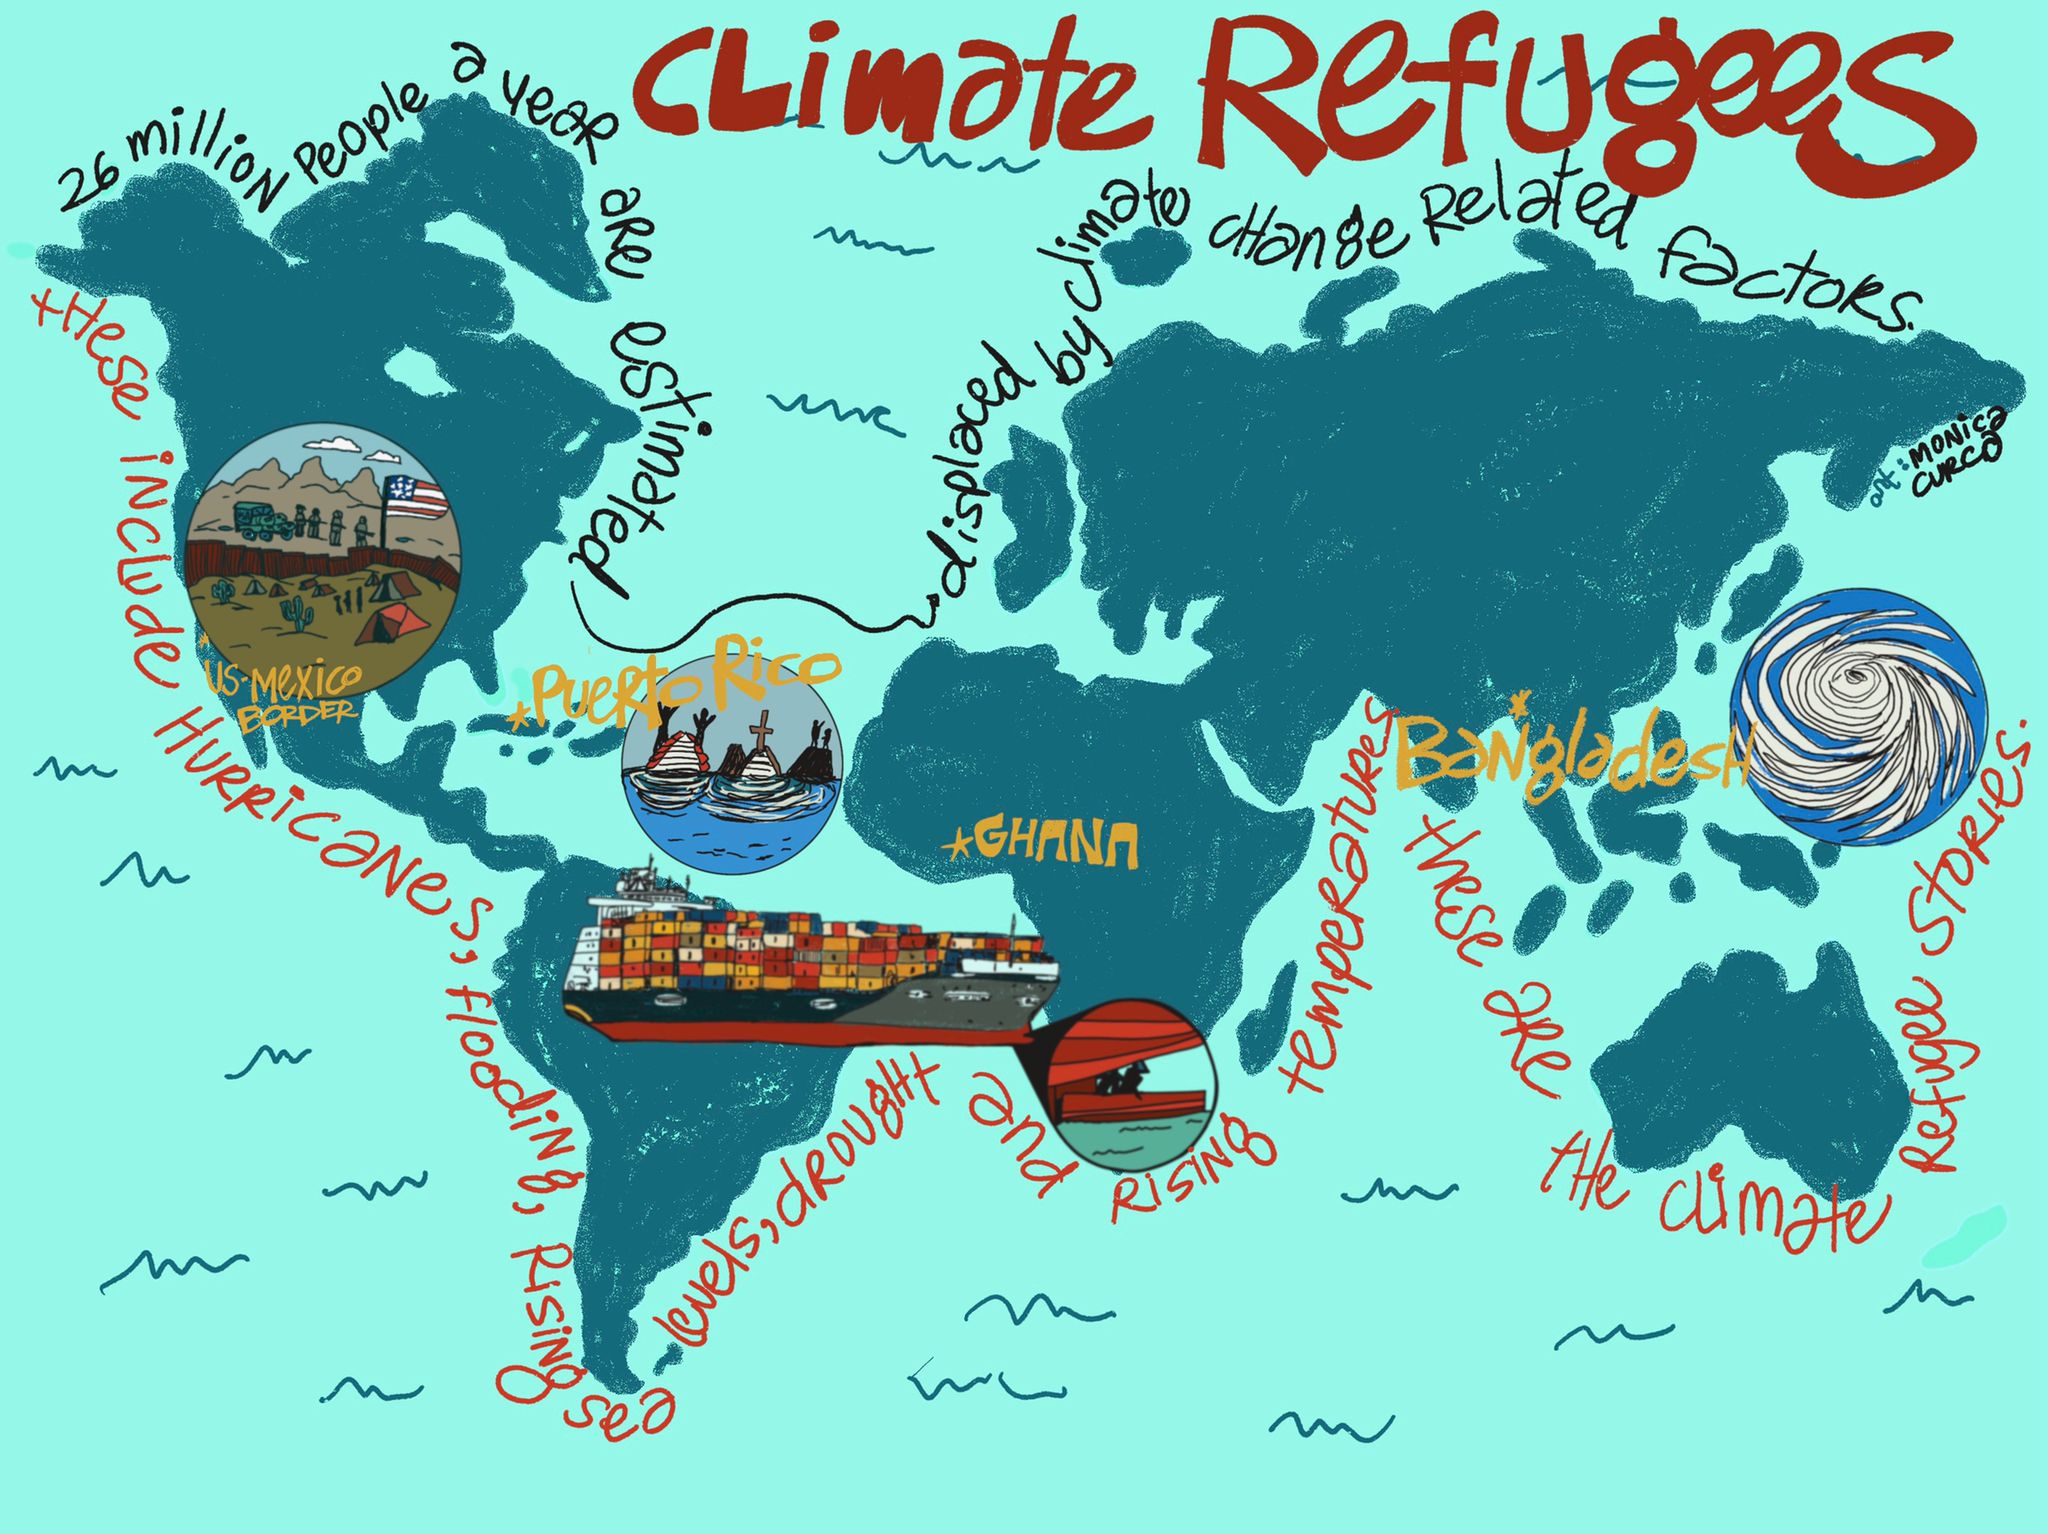 CLimate Refugees
26 million People a year are estimated
displaced by climate change Related factors.
these include Hurricanes, flooding, Rising sea levels, drought and Rising temperatures.
these are the climate Refugee Stories.
art: MONICA
CURCA
US-Mexico
BORDER
Puerto Rico
GHANA
Bangladesh